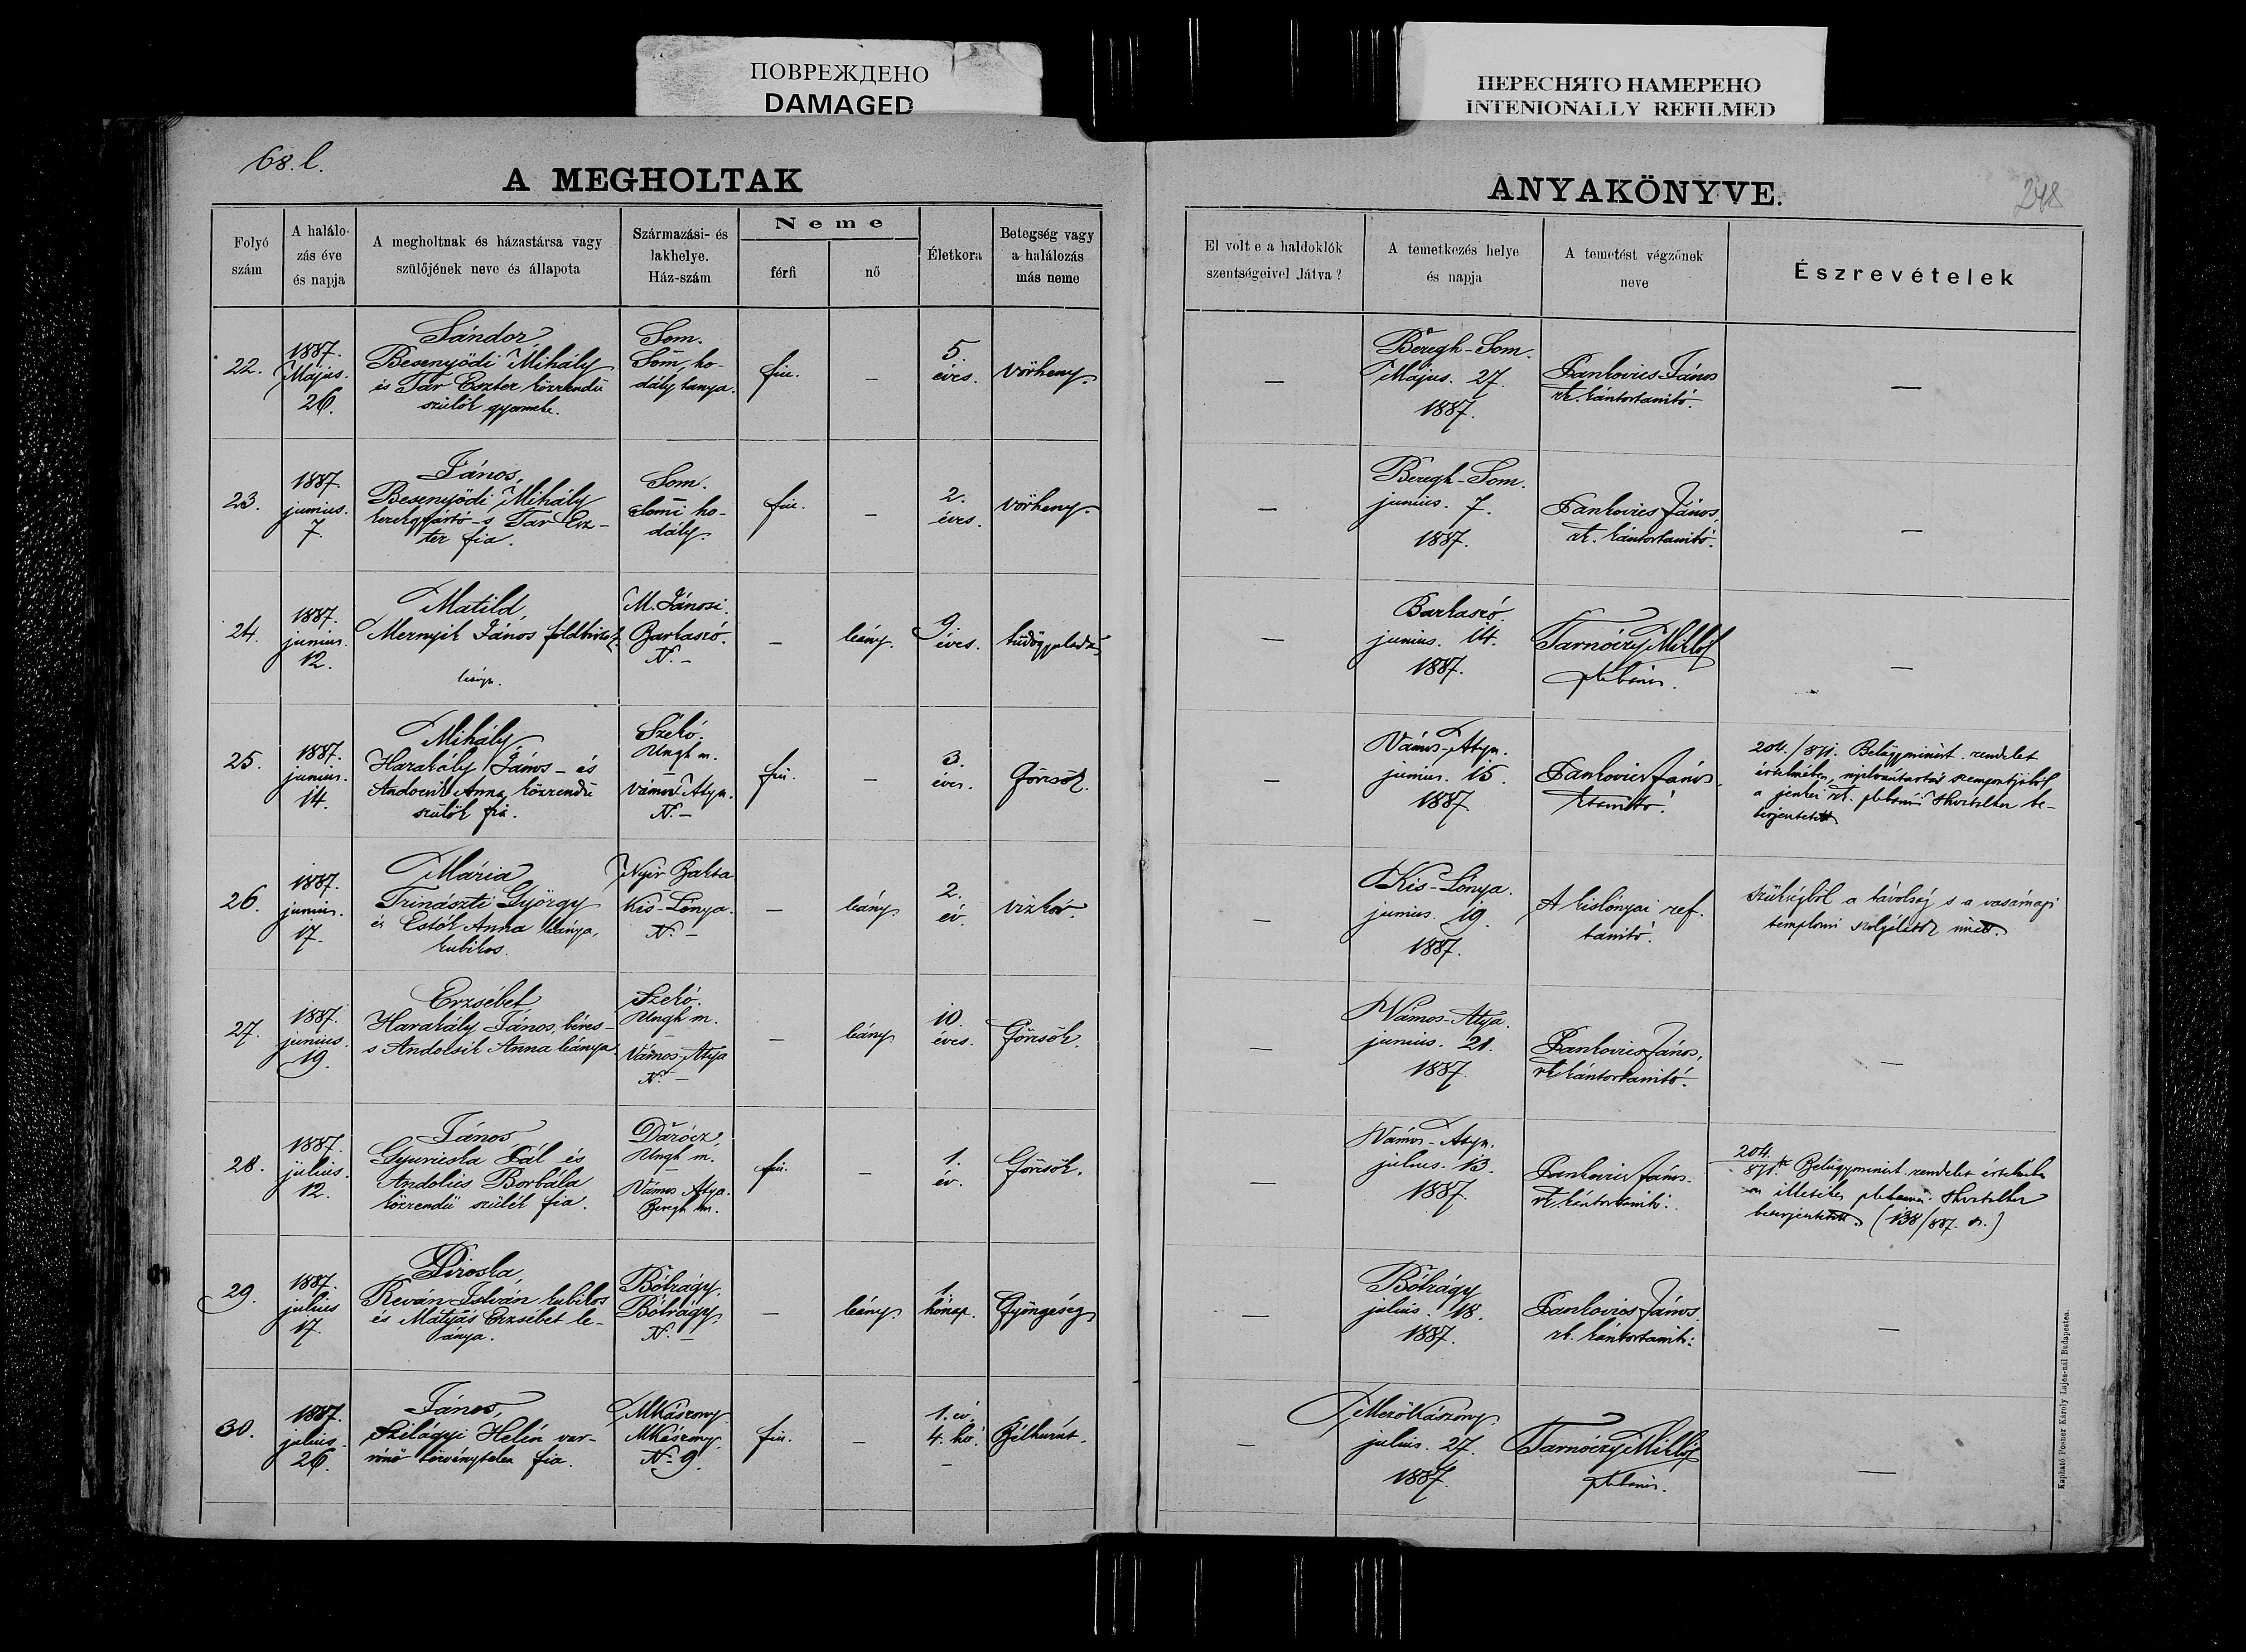 ПОВРЕЖДЕНО
DAMAGED
ПЕРЕСНЯТО НАМЕРЕНО
INTENIONALLY REFILMED
68. l.
248
A MEGHOLTAK
ANYAKÖNYVE.
Folyó szám
A halálozás éve és napja
A megholtnak és házastársa vagy szülőjének neve és állapota
Származási- és lakhelye. Ház-szám
Neme
férfi
nő
Életkora
Betegség vagy a halálozás más neme
El volt e a haldoklók szentségeivel látva?
A temetkezés helye és napja
A temetést végzőnek neve
Észrevételek
22.
1887.
Május.
26.
Sándor,
Besenyödi Mihály
és Tar Eszter közrendü
szülök gyermeke.
Som.
Som, ho-
dály tanya.
fiu.
–
5.
éves.
Vörheny.
—
Beregh-Som.
Május. 27.
1887.
Pankovics János
rk. kántortanitó.
—
23.
1887
junius.
7.
János,
Besenyödi Mihály
kerékgyártó -s Tar Esz-
ter fia.
Som.
Somi ho-
dály.
fiu.
–
2.
éves.
vörheny.
—
Beregh-Som.
junius. 7.
1887.
Pankovics János,
rk. kántortanitó.
—
24.
1887.
junius.
12.
Matild,
Mernyik János földbirtok.
leánya.
M. Jánosi.
Barkaszó.
N. –
–
leány.
9.
éves.
—
Barkaszó.
junius. 14.
1887.
Tarnóczy Miklós
plebános.
—
25.
1887.
junius.
14.
Mihály,
Harakály János – és
Anna közrendü
szülök fia.
Szekó.
Ungh m.
Vámos-Atya.
N. –
fiu.
–
3.
éves.
Görcsök.
—
Vámos-Atya.
junius. 15.
1887.
Pankovics János
204./871. Belügyminist. rendelet
értelmében, nyilvántartás szempontjából
a rk. plebániai Hivatalhoz be-
terjesztetett
26.
1887.
junius.
17.
Mária
Trinászti György
és Estók Anna leánya,
kubikos.
Nyir Bakta
Kis-Lónya.
N. –
–
leány
2.
év.
vizkór.
—
Kis-Lónya.
junius. 19.
1887.
A kislónyai ref.
tanitó.
szükségből a távolság s a vasárnapi
templomi szolgálatok miatt.
27.
1887.
junius.
19.
Erzsébet
Harakály János, béres –
s Andolsik Anna leánya
Szekó.
Ungh m.
–
Vámos-Atya
N. –
–
leány
10.
éves.
Görcsök.
—
Vámos-Atya.
junius. 21.
1887.
Pankovics János,
rk. kántortanitó.
—
28.
1887.
julius.
12.
János
Gyuricska Pál és
Borbála
közrendü szülék fia.
Darócz.
Ungh m.
–
Vámos Atya.
Beregh m.
fiu.
–
1.
év.
Görcsök.
—
Vámos-Atya.
julius. 13.
1887.
Pankovics János.
rk. kántortanitó.
204.
871. Belügyminist. rendelet értelmében
az illetékes plebaniai Hivatalhoz
beterjesztetett (138/887. sz.)
29.
1887.
julius
17.
Piroska,
Reván István kubikos
és Mátyás Erzsébet le-
ánya.
Bótrágy.
Bótrágy.
N. –
–
leány.
1.
hónap.
Gyöngeség
—
Bótrágy
julius. 18.
1887.
Pankovics János.
rk. kántortanitó.
—
30.
1887.
julius.
26.
János,
Szilágyi Helén var-
rónő törvénytelen fia.
MKászony
MKászony.
N. 9.
fiu.
–
1. év.
4. hó.
–
Bélhurut.
—
MezőKászony.
julius. 27.
1887.
Tarnóczy Miklós
plebános.
—
Kapható Posner Károly Lajos-nál Budapesten.